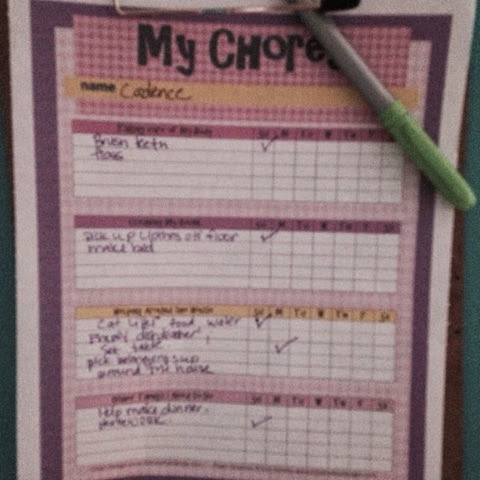 My Chores
name Cadence
Taking care of My Body
Su M Tu W Th F Sa
Brush teeth
floss
Su M Tu W Th F Sa
pick up clothes off floor
make bed
Helping Around the House
Su M Tu W Th F Sa
Cat litter, food, water
dishwasher,
Set table
pick belongings up
around the house
Su M Tu W Th F Sa
Help make dinner,